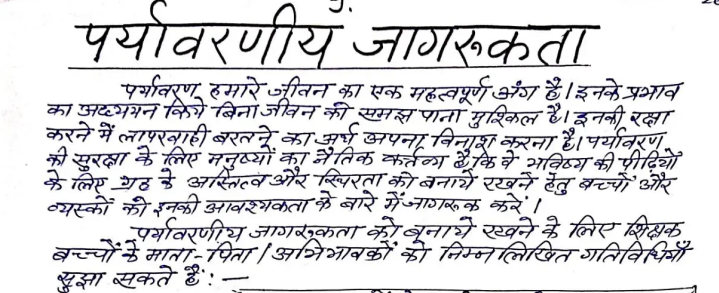 पर्यावरणीय जागरूकता
पर्यावरण हमारे जीवन का एक महत्वपूर्ण अंग है। इनके प्रभाव
का अध्ययन किये बिना जीवन को समझ पाना मुश्किल है। इनकी रक्षा
करने में लापरवाही बरतने का अर्थ अपना विनाश करना है। पर्यावरण
की सुरक्षा के लिए मनुष्यों का नैतिक कर्तव्य है कि वे भविष्य की पीढ़ियों
के लिए ग्रह के अस्तित्व और स्थिरता को बनाये रखने हेतु बच्चों और
व्यस्कों को इनकी आवश्यकता के बारे में जागरूक करें।
पर्यावरणीय जागरूकता को बनाये रखने के लिए शिक्षक
बच्चों के माता-पिता / अभिभावकों को निम्नलिखित गतिविधियाँ
सुझा सकते हैं:—